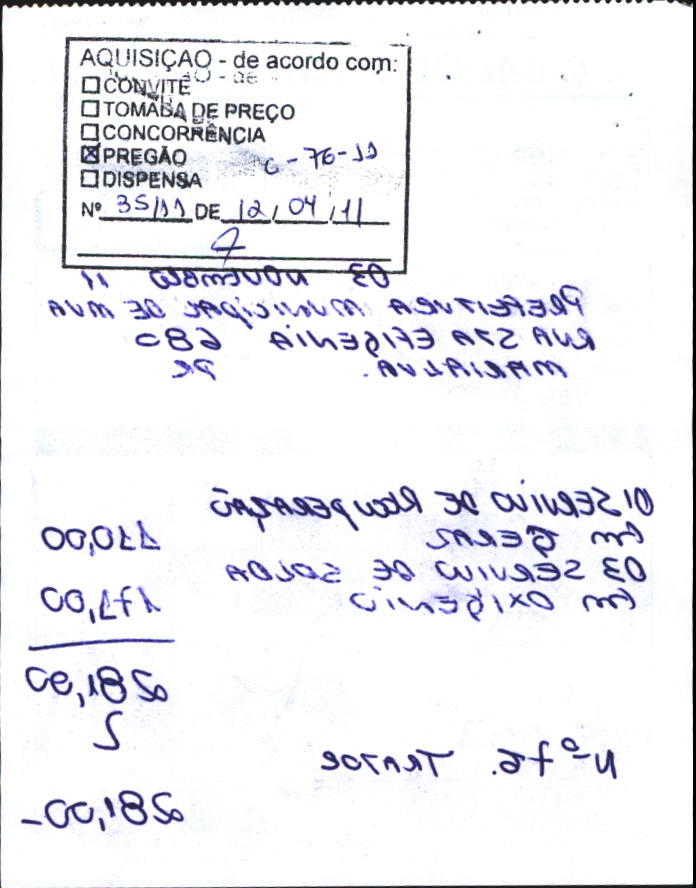 AQUISIÇAO - de acordo com:
CONVITE
TOMADA DE PREÇO
CONCORRÊNCIA
PREGÃO C-76-11
DISPENSA
Nº 35/11 DE 12/04/11
03 NOVEMBRO 11
PREFEITURA MUNICIPAL DE MVA
RUA STA EFIGENIA 680
MARIALVA. PR
01 SERVIÇO DE RECUPERAÇÃO
EM GERAL 110,00
03 SERVIÇO DE SOLDA
EM OXIGENIO 171,00
281,00
Nº 76. TRATOR
281,00-